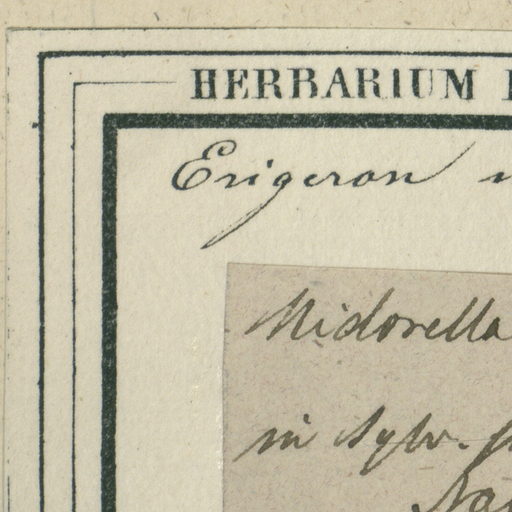 HERBARIUM
Erigeron
Nidorella
in sylv.